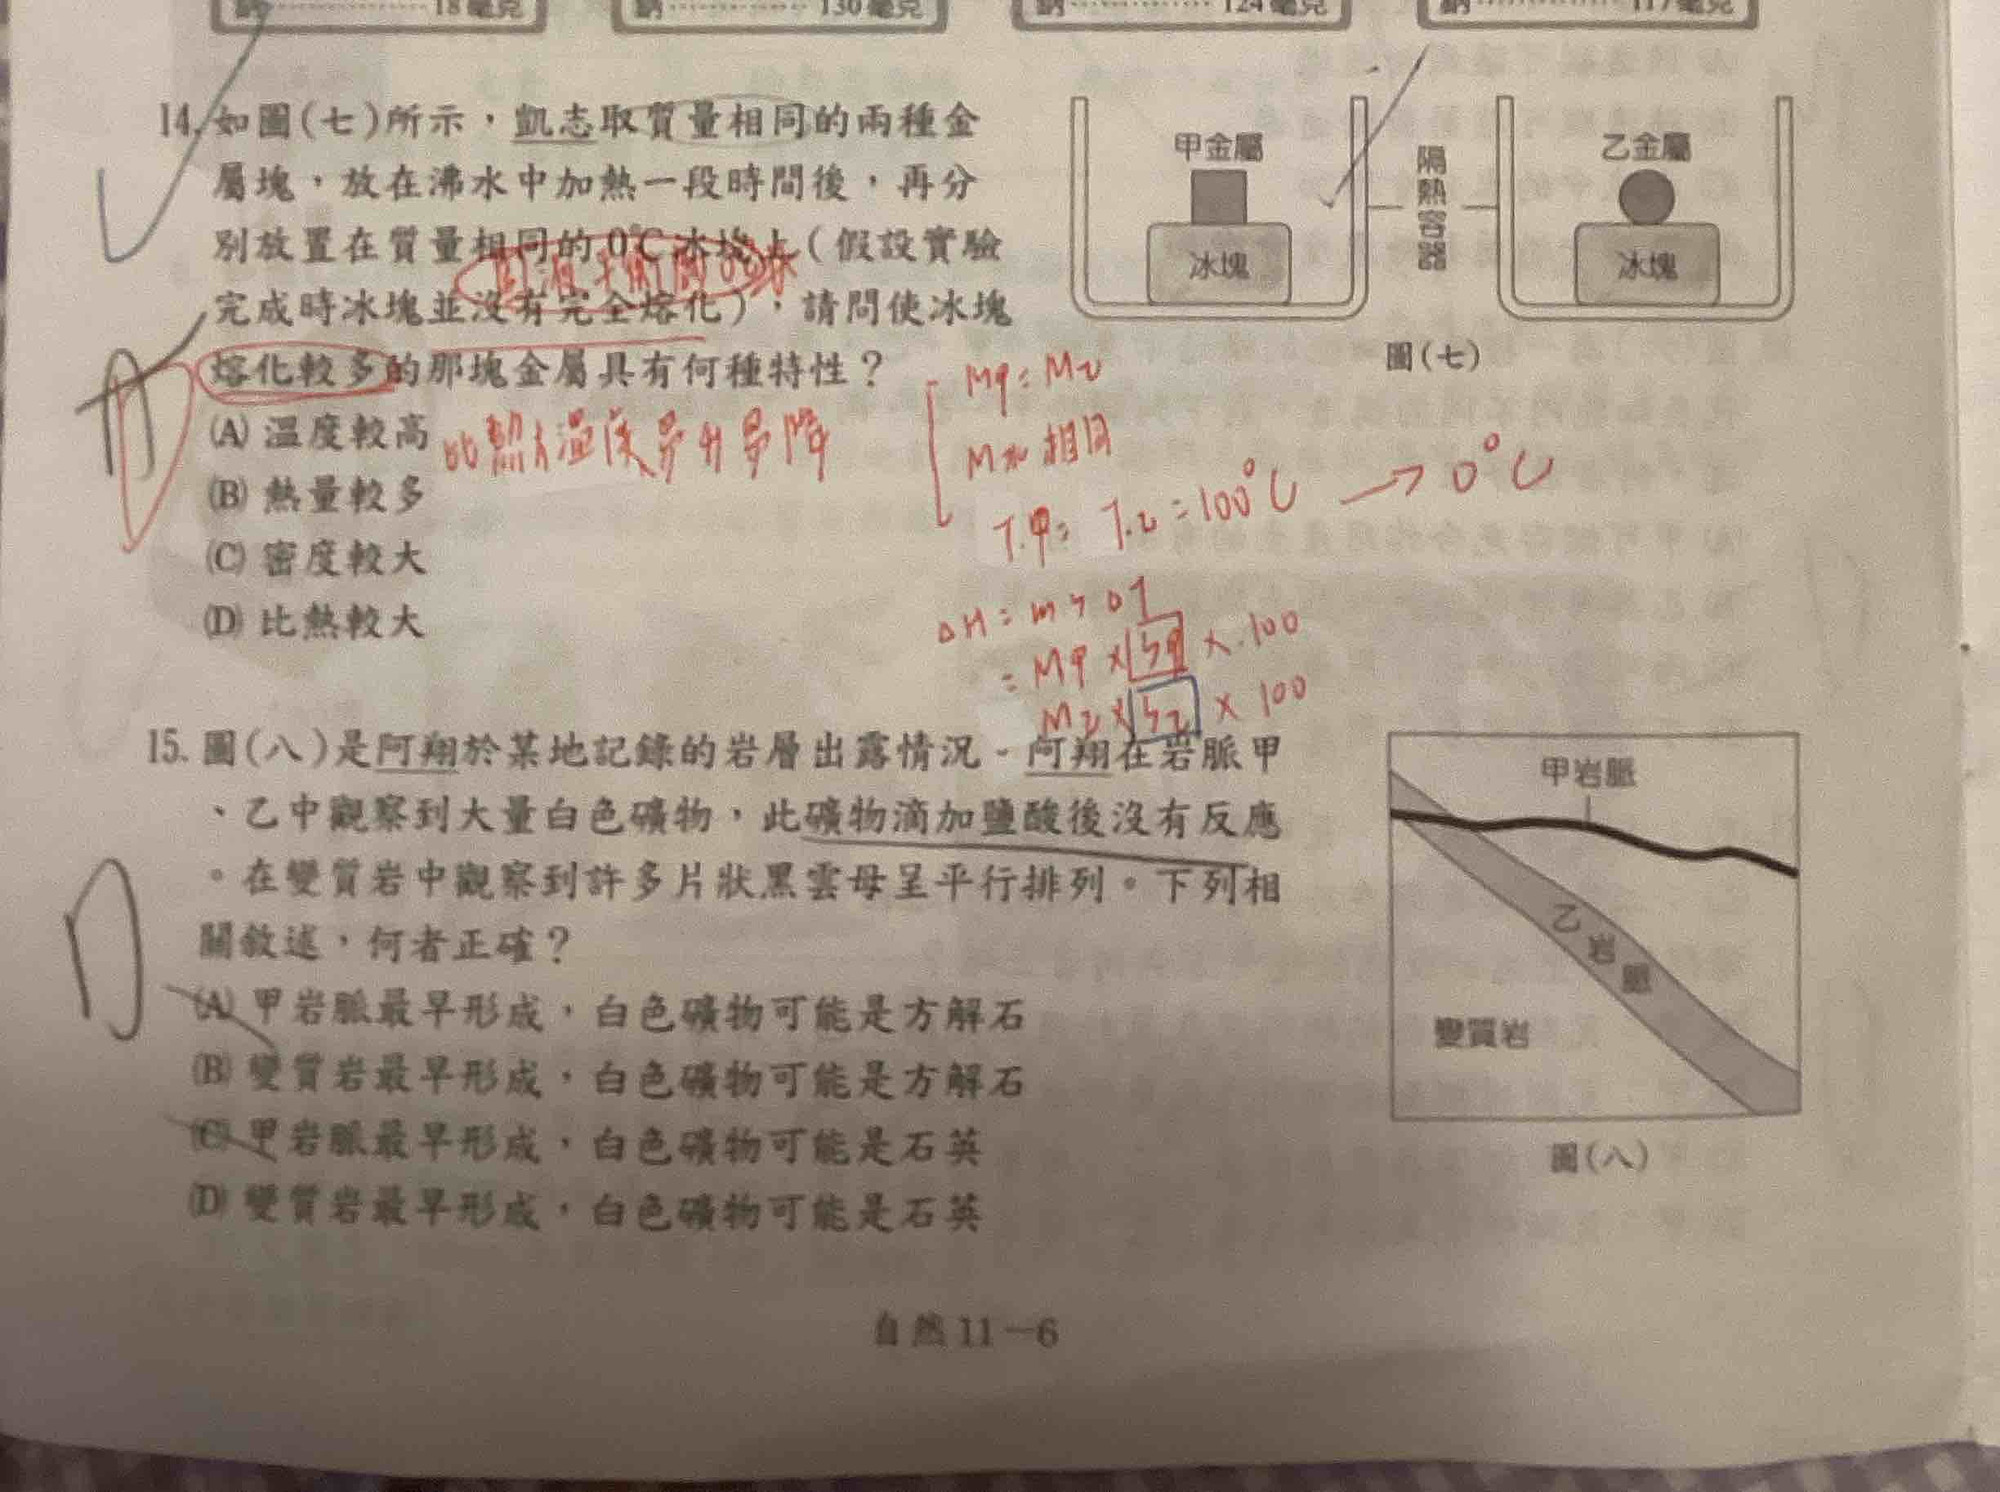 鈉 18毫克
鈉 130毫克
鈉 124毫克
鈉 117毫克
14. 如圖(七)所示，凱志取質量相同的兩種金
屬塊，放在沸水中加熱一段時間後，再分
別放置在質量相同的0℃冰塊上(假設實驗
完成時冰塊並沒有完全熔化)，請問使冰塊
熔化較多的那塊金屬具有何種特性？
(A) 溫度較高
(B) 熱量較多
(C) 密度較大
(D) 比熱較大
甲金屬
冰塊
隔熱容器
乙金屬
冰塊
圖(七)
D
M甲=M乙
M冰 相同
T甲= T乙=100℃ → 0℃
ΔH=msΔT
=M甲×S甲×100
M乙×S乙×100
15. 圖(八)是阿翔於某地記錄的岩層出露情況。阿翔在岩脈甲
、乙中觀察到大量白色礦物，此礦物滴加鹽酸後沒有反應
。在變質岩中觀察到許多片狀黑雲母呈平行排列。下列相
關敘述，何者正確？
(A) 甲岩脈最早形成，白色礦物可能是方解石
(B) 變質岩最早形成，白色礦物可能是方解石
(C) 甲岩脈最早形成，白色礦物可能是石英
(D) 變質岩最早形成，白色礦物可能是石英
D
甲岩脈
乙岩脈
變質岩
圖(八)
自然11－6